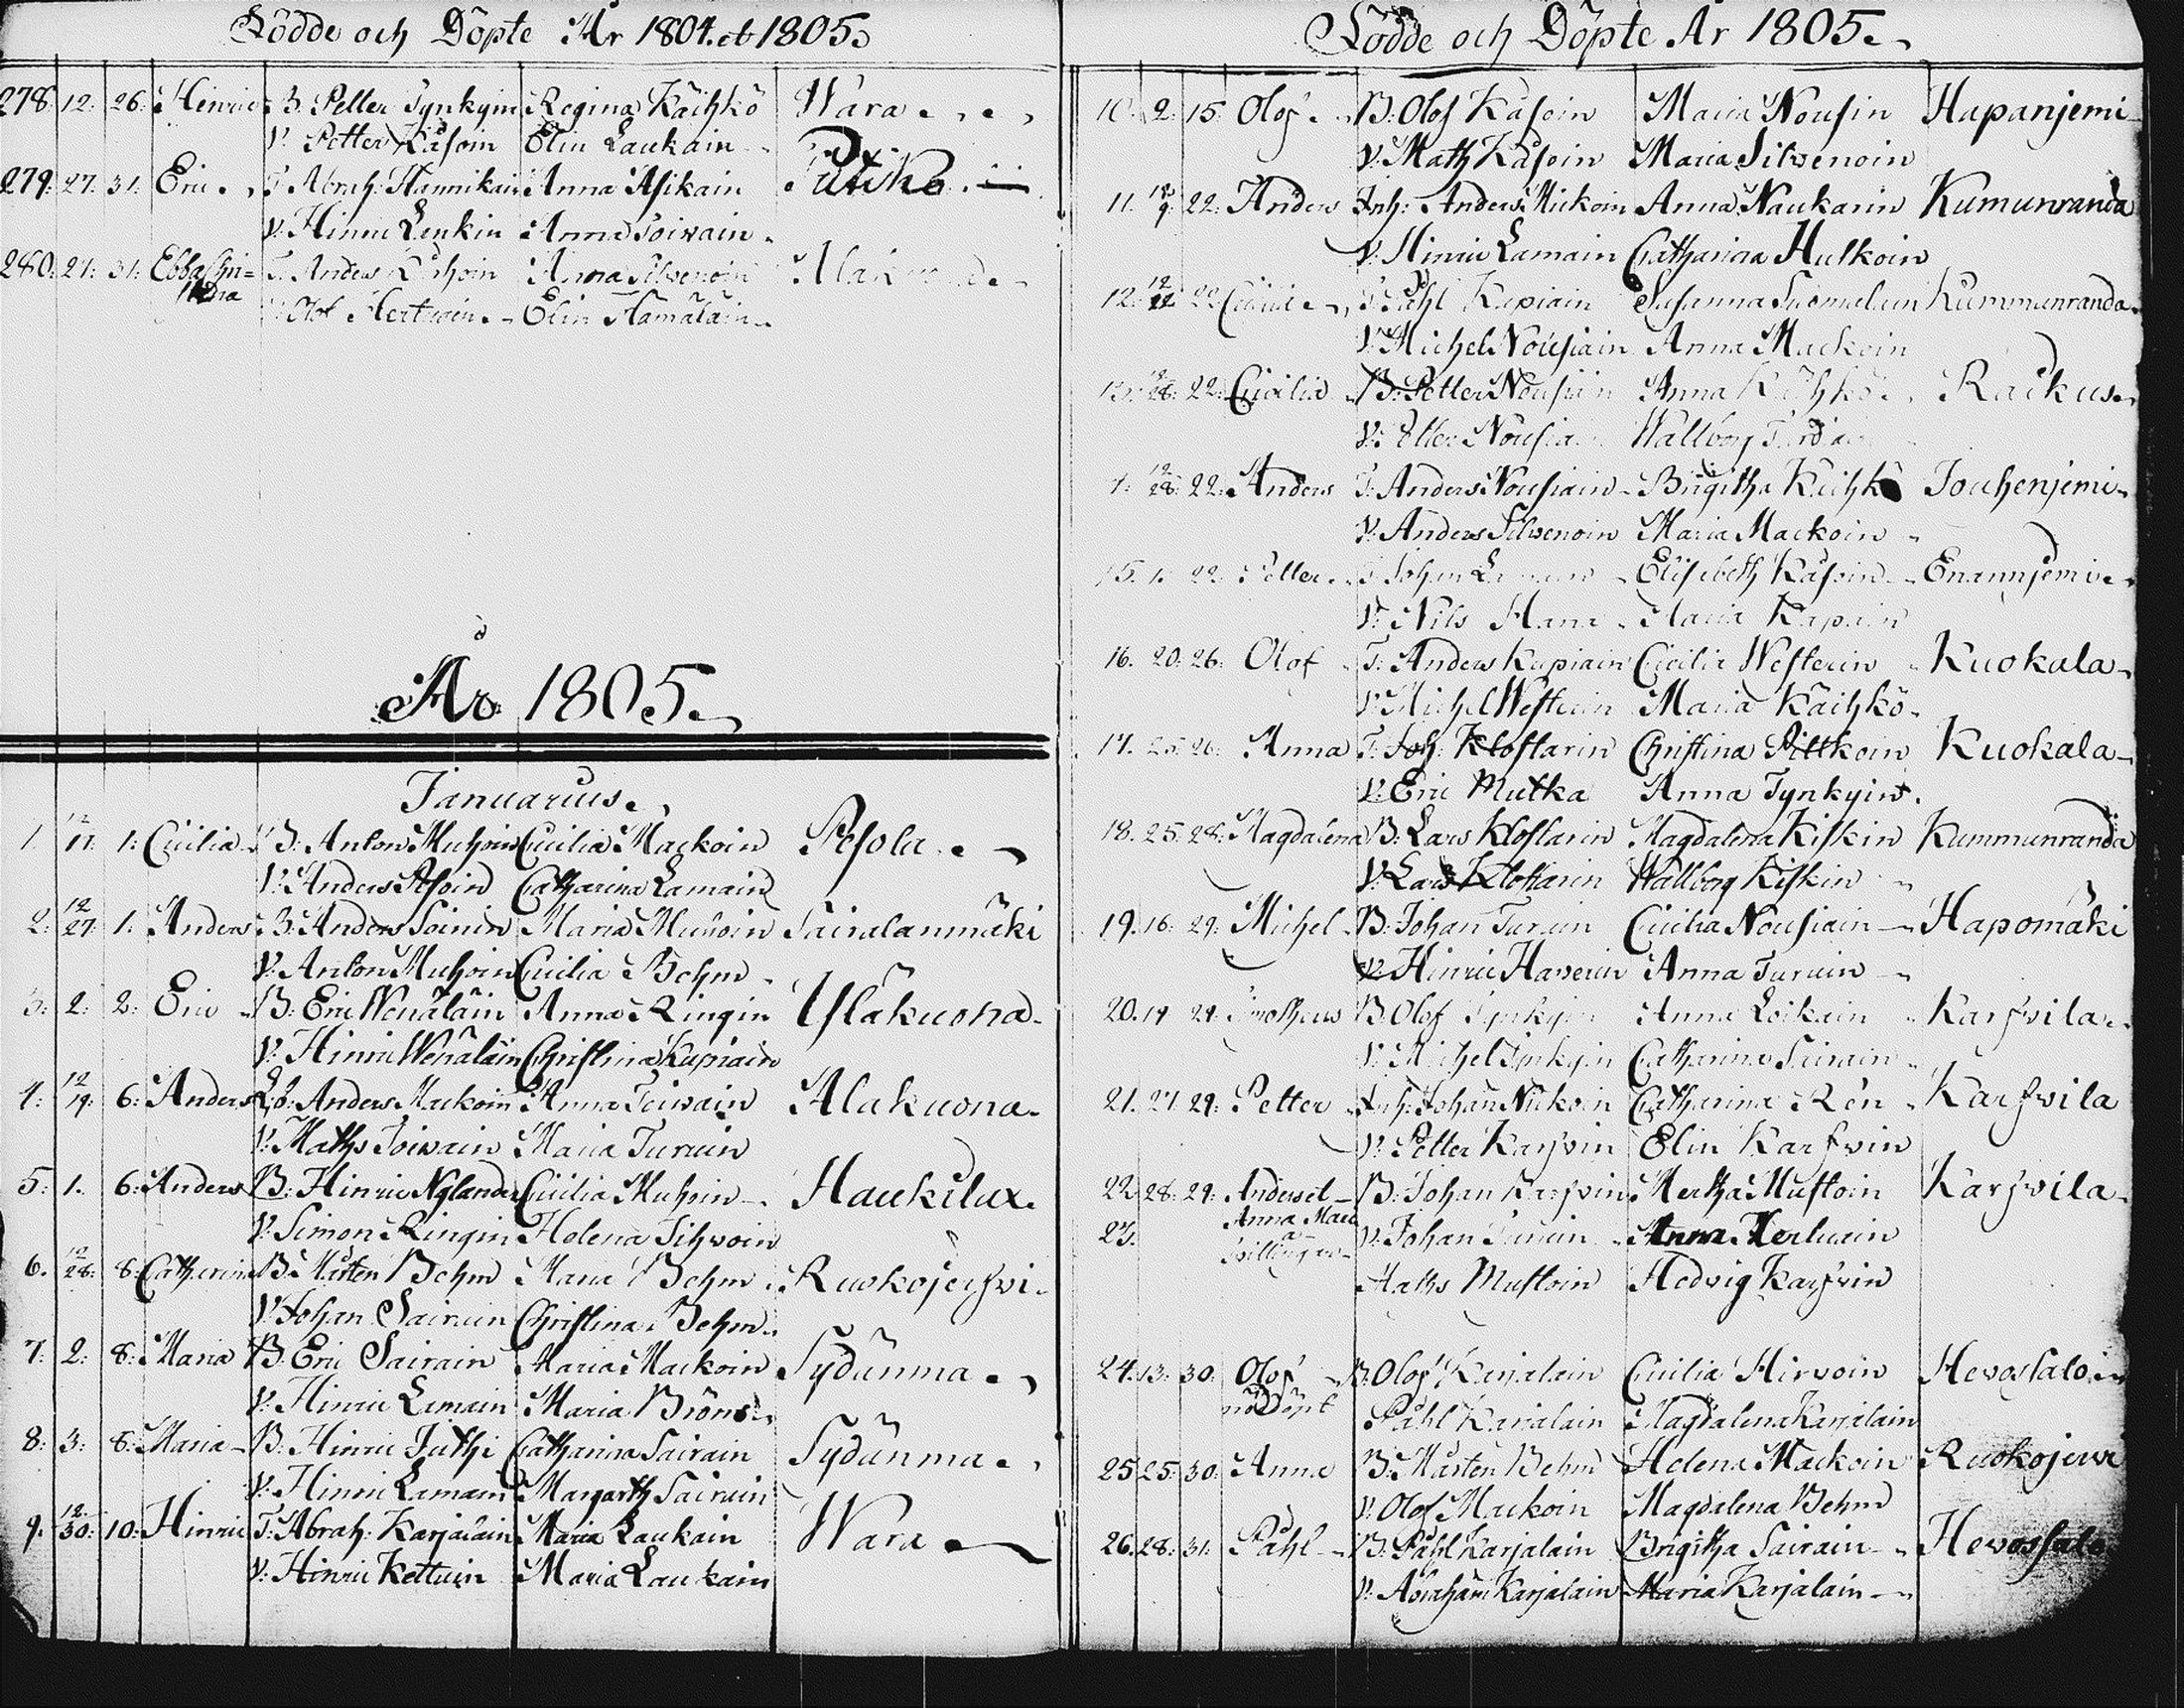 Födde och Döpte År 1804. et 1805.
278. 12. 26. Henric B. Petter Tynkyin Regina Käihkö Wara
V. Petter Kåsoin Elin Laukain
279. 27. 31. Eric T. Abrah: Hannikain Anna Asikain Putiko
V. Hinric Lenkin Anna Toiwain
280. 21. 31. Ebba Chri= T. Anders Anna Silvenoin
stina V. Olof Hertuin Elin Hämäläin
År 1805.
Januarius.
1. 12/17. 1. Cicilia B. Anton Muhoin Cicilia Mackoin Pesola
V. Anders Asoin Catharina Lamain
2. 12/27. 1. Anders B. Anders Soinin Maria Muhoin Sairalanmäki
V. Anton Muhoin Cicilia Behm
3. 2. 2. Eric B. Eric Wenäläin Anna Ringin Yläkuona
V. Hinric Wenäläin Christina Kupiain
4. 12/19. 6. Anders Anders Mackoin Anna Toiwain Alakuona
V. Maths Toiwain Maria Turuin
5. 1. 6. Anders B. Hinric Nylander Cicilia Muhoin Haukilax
V. Simon Ringin Helena Sihvoin
6. 12/28. 8. Catharina B. Mårten Behm Maria Behm Ruokojerfvi
V. Johan Sairain Christina Behm
7. 2. 8. Maria B. Eric Sairain Maria Mackoin Sydänma
V. Hinric Lamain Maria Bröms
8. 3. 8. Maria B. Hinric Juthi Catharina Sairain Sydänma
V. Hinric Lamain Margarth Sairain
9. 12/30. 10. Hinric T. Abrah: Karjalain Maria Laukain Wara
V. Hinric Kettuin Maria Laukain
Födde och Döpte År 1805.
10. 2. 15. Olof B. Olof Kåsoin Maria Nousin Hapanjemi
V. Math Kåsoin Maria Silwenoin
11. 12/9. 22. Anders Inh: Anders Mickoin Anna Naukarin Kumunranda
V. Hinric Lamain Catharina Hulkoin
12. 12/22. 22. Cicilia T. Påhl Kupiain Susanna Suomalain Kummunranda
V. Michel Nousiain Anna Mackoin
13. 12/28. 22. Cicilia B. Petter Nousiain Anna Käihkö Raikus
V. Petter Nousiain Wallborg
12/28. 22. Anders T. Anders Nousiain Brigitha Käihkö Jouhenjemi
V. Anders Silvenoin Maria Mackoin
15. 1. 22. Petter T. Johan Elisabeth Kåsoin Enannjemi
V. Nils Maria Kupiain
16. 20. 26. Olof T. Anders Kupiain Cicilia Westerin Kuokala
V. Michel Westerin Maria Käihkö
17. 25. 26. Anna T. Joh: Klostarin Christina Pittkoin Kuokala
V. Eric Mutka Anna Tynkyin
18. 25. 28. Magdalena B. Lars Klostarin Magdalena Kiskin Kummunranda
V. Lars Klostarin Wallborg Kiskin
19. 16. 29. Michel B. Johan Turuin Cicilia Nousiain Hapomäki
V. Hinric Haverin Anna Turuin
20. 19. 29. Timotheus B. Olof Tynkyin Anna Loikain Karfvila
V. Michel Tynkyin Catharina Sairain
21. 27. 29. Petter Inh: Johan Nickoin Catharina Rén Karfvila
V. Petter Karfvin Elin Karfvin
22. 28. 29. Anders et B. Johan Karfvin Mertha Mustoin Karfvila
23. Anna Maria V. Johan Turuin Anna Kerluin
Tvillingar Maths Mustoin Hedvig Karfvin
24. 13. 30. Olof B. Olof Karjalain Cicilia Hirvoin Hevossalo
nöddöpt Påhl Karjalain Magdalena Karjalain
25. 25. 30. Anna B. Mårten Behm Helena Mackoin Ruokojerwi
V. Olof Mackoin Magdalena Behm
26. 28. 31. Påhl B. Påhl Karjalain Brigitha Sairain Hevossalo
V. Abraham Karjalain Maria Karjalain